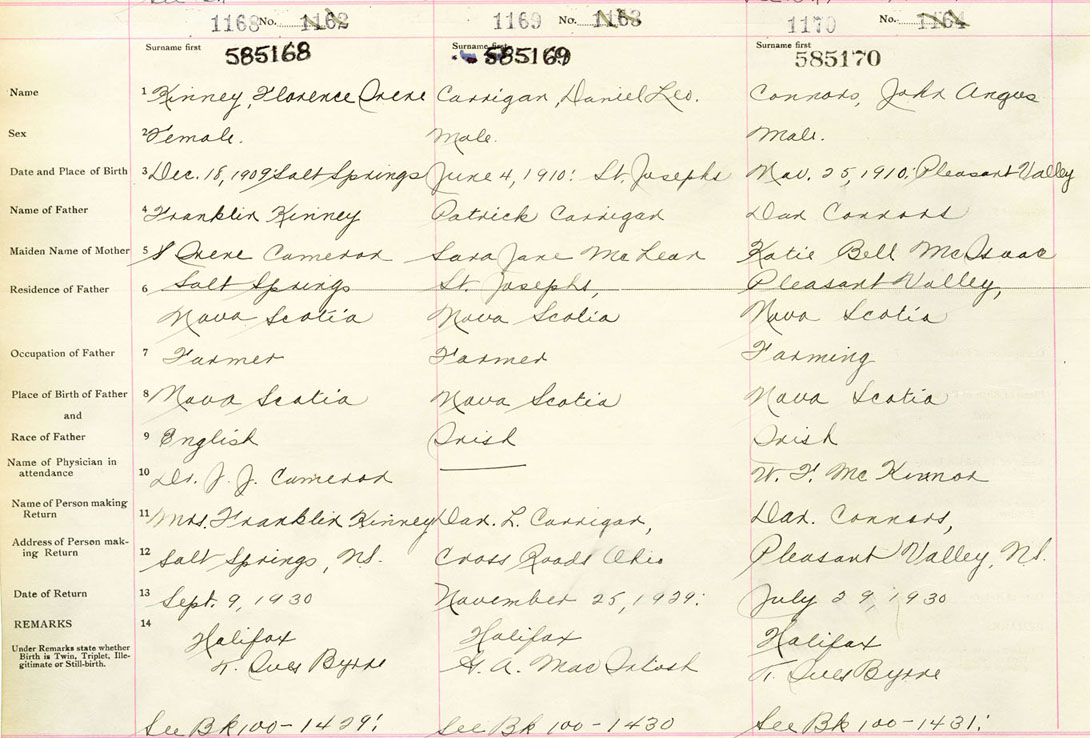 1168 No. 1162 1169 No. 1163 1170 No. 1164
Surname first Surname first Surname first
585168 585169 585170
Name 1 Kinney, Florence Irene Carrigan, Daniel Leo. Connors, John Angus
Sex 2 Female. Male. Male.
Date and Place of Birth 3 Dec. 18, 1909; Salt Springs June 4, 1910: St. Josephs Nov. 25, 1910; Pleasant Valley
Name of Father 4 Franklin Kinney Patrick Carrigan Dan Connors
Maiden Name of Mother 5 Irene Cameron Sara Jane McLean Katie Bell McIsaac
Residence of Father 6 Salt Springs St. Josephs, Pleasant Valley,
Nova Scotia Nova Scotia Nova Scotia
Occupation of Father 7 Farmer Farmer Farming
Place of Birth of Father 8 Nova Scotia Nova Scotia Nova Scotia
and
Race of Father 9 English Irish Irish
Name of Physician in
attendance 10 Dr. J. J. Cameron W. F. McKinnon
Name of Person making
Return 11 Mrs. Franklin Kinney Dan. L. Carrigan, Dan. Connors,
Address of Person mak-
ing Return 12 Salt Springs, N.S. Cross Roads Ohio Pleasant Valley, N.S.
Date of Return 13 Sept. 9, 1930 November 25, 1929: July 29, 1930
REMARKS 14 Halifax Halifax Halifax
Under Remarks state whether
Birth is Twin, Triplet, Ille-
gitimate or Still-birth.
T. Ives Byrne H. A. MacIntosh T. Ives Byrne
See Bk 100-1429: See Bk 100-1430 See Bk 100-1431: